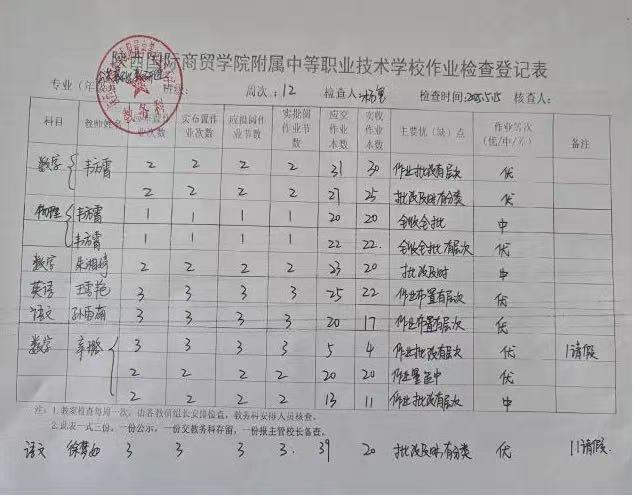 陕西国际商贸学院附属中等职业技术学校作业检查登记表
教务科
专业(年 班级: 周次:12 检查人: 检查时间:2025.5.15 核查人:
科目 教师姓名 应布置作业次数 实布置作业次数 应批阅作业节数 实批阅作业节数 应交作业本数 实收作业本数 主要优(缺)点 作业等次(优/中/差) 备注
数学 韦方雷 2 2 2 2 31 30 作业批改有层次 优
2 2 2 2 27 25 批改及时有分类 优
物理 韦方雷 1 1 1 1 20 20 全收全批 中
韦方雷 1 1 1 1 22 22. 全收全批有层次 优
数学 朱湘琦 2 2 2 2 23 20 批改及时 中
英语 王雪艳 3 3 3 3 25 22 作业布置有层次 优
语文 孙雨萌 3 3 3 3 20 17 作业布置有层次 优
数学 辛璐 3 3 3 3 5 4 作业批改有层次 优 1请假
2 2 2 2 20 20 作业量适中 优
2 2 2 2 13 11 作业批改有层次 中
注:1.教案检查每周一次,由各教研组长安排检查,教务科安排人员核查。
2.此表一式三份,一份公示,一份交教务科存留,一份报主管校长备查。
语文 徐梦如 3 3 3 3. 39 20 批改及时,有分类 优 11请假.